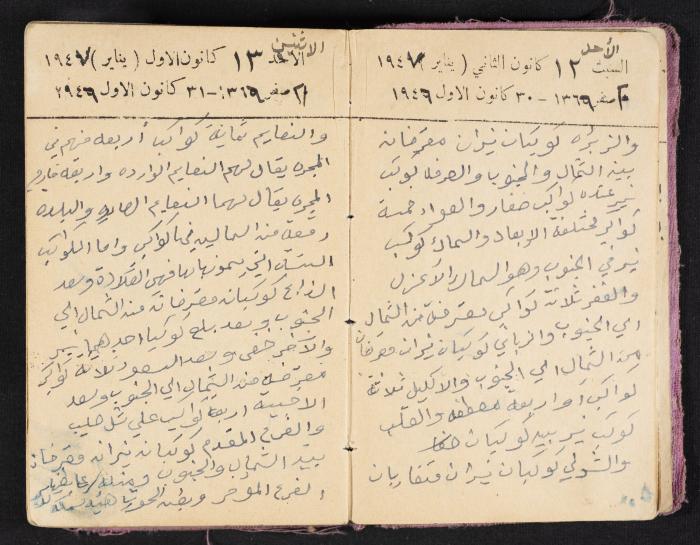 الأحد
السبت ١٢ كانون الثاني ( يناير ) ١٩٤٧
صفر ١٣٦٦ - ٣٠ كانون الاول ١٩٤٦
والزبره كوكبان نيران مفترقان
بين الشمال والجنوب والصرفه كوكب
نير عنده كواكب صغار والعواء خمسة
كواكب مختلفة الابعاد والسماك كوكب
نير في الجنوب وهو السماك الأعزل
والغفر ثلاثة كواكب مفترقة من الشمال
الى الجنوب والزباني كوكبان نيران مفترقان
من الشمال الى الجنوب والاكليل ثلاثة
كواكب أو اربعة مصطفه والقلب
كوكب نير بين كوكبان
والشولي كوكبان نيران متقاربان
الاثنين
الاحد ١٣ كانون الاول ( يناير ) ١٩٤٧
صفر ١٣٦٦ - ٣١ كانون الاول ١٩٤٦
والنعايم ثمانية كواكب أربعه منهم في
المجره يقال لهم النعايم الوارده واربعة خارج
المجره يقال لهما النعايم الصادره والبلده
رقعة من السما ليس فيها كواكب واما الكواكب
التي يسمونها فهي القلادة وسعد
الذابح كوكبان مفترقان من الشمال الى
الجنوب وسعد بلع كوكبا احدهما نير
والآخر خفي وسعد السعود ثلاثة كواكب
مفترقه من الشمال الى الجنوب وسعد
الاخبية اربعة كواكب على شكل صليب
والفرع المقدم كوكبان نيران مفترقان
بين الشمال والجنوب ومثله
الفرع المؤخر وبطن الحوت